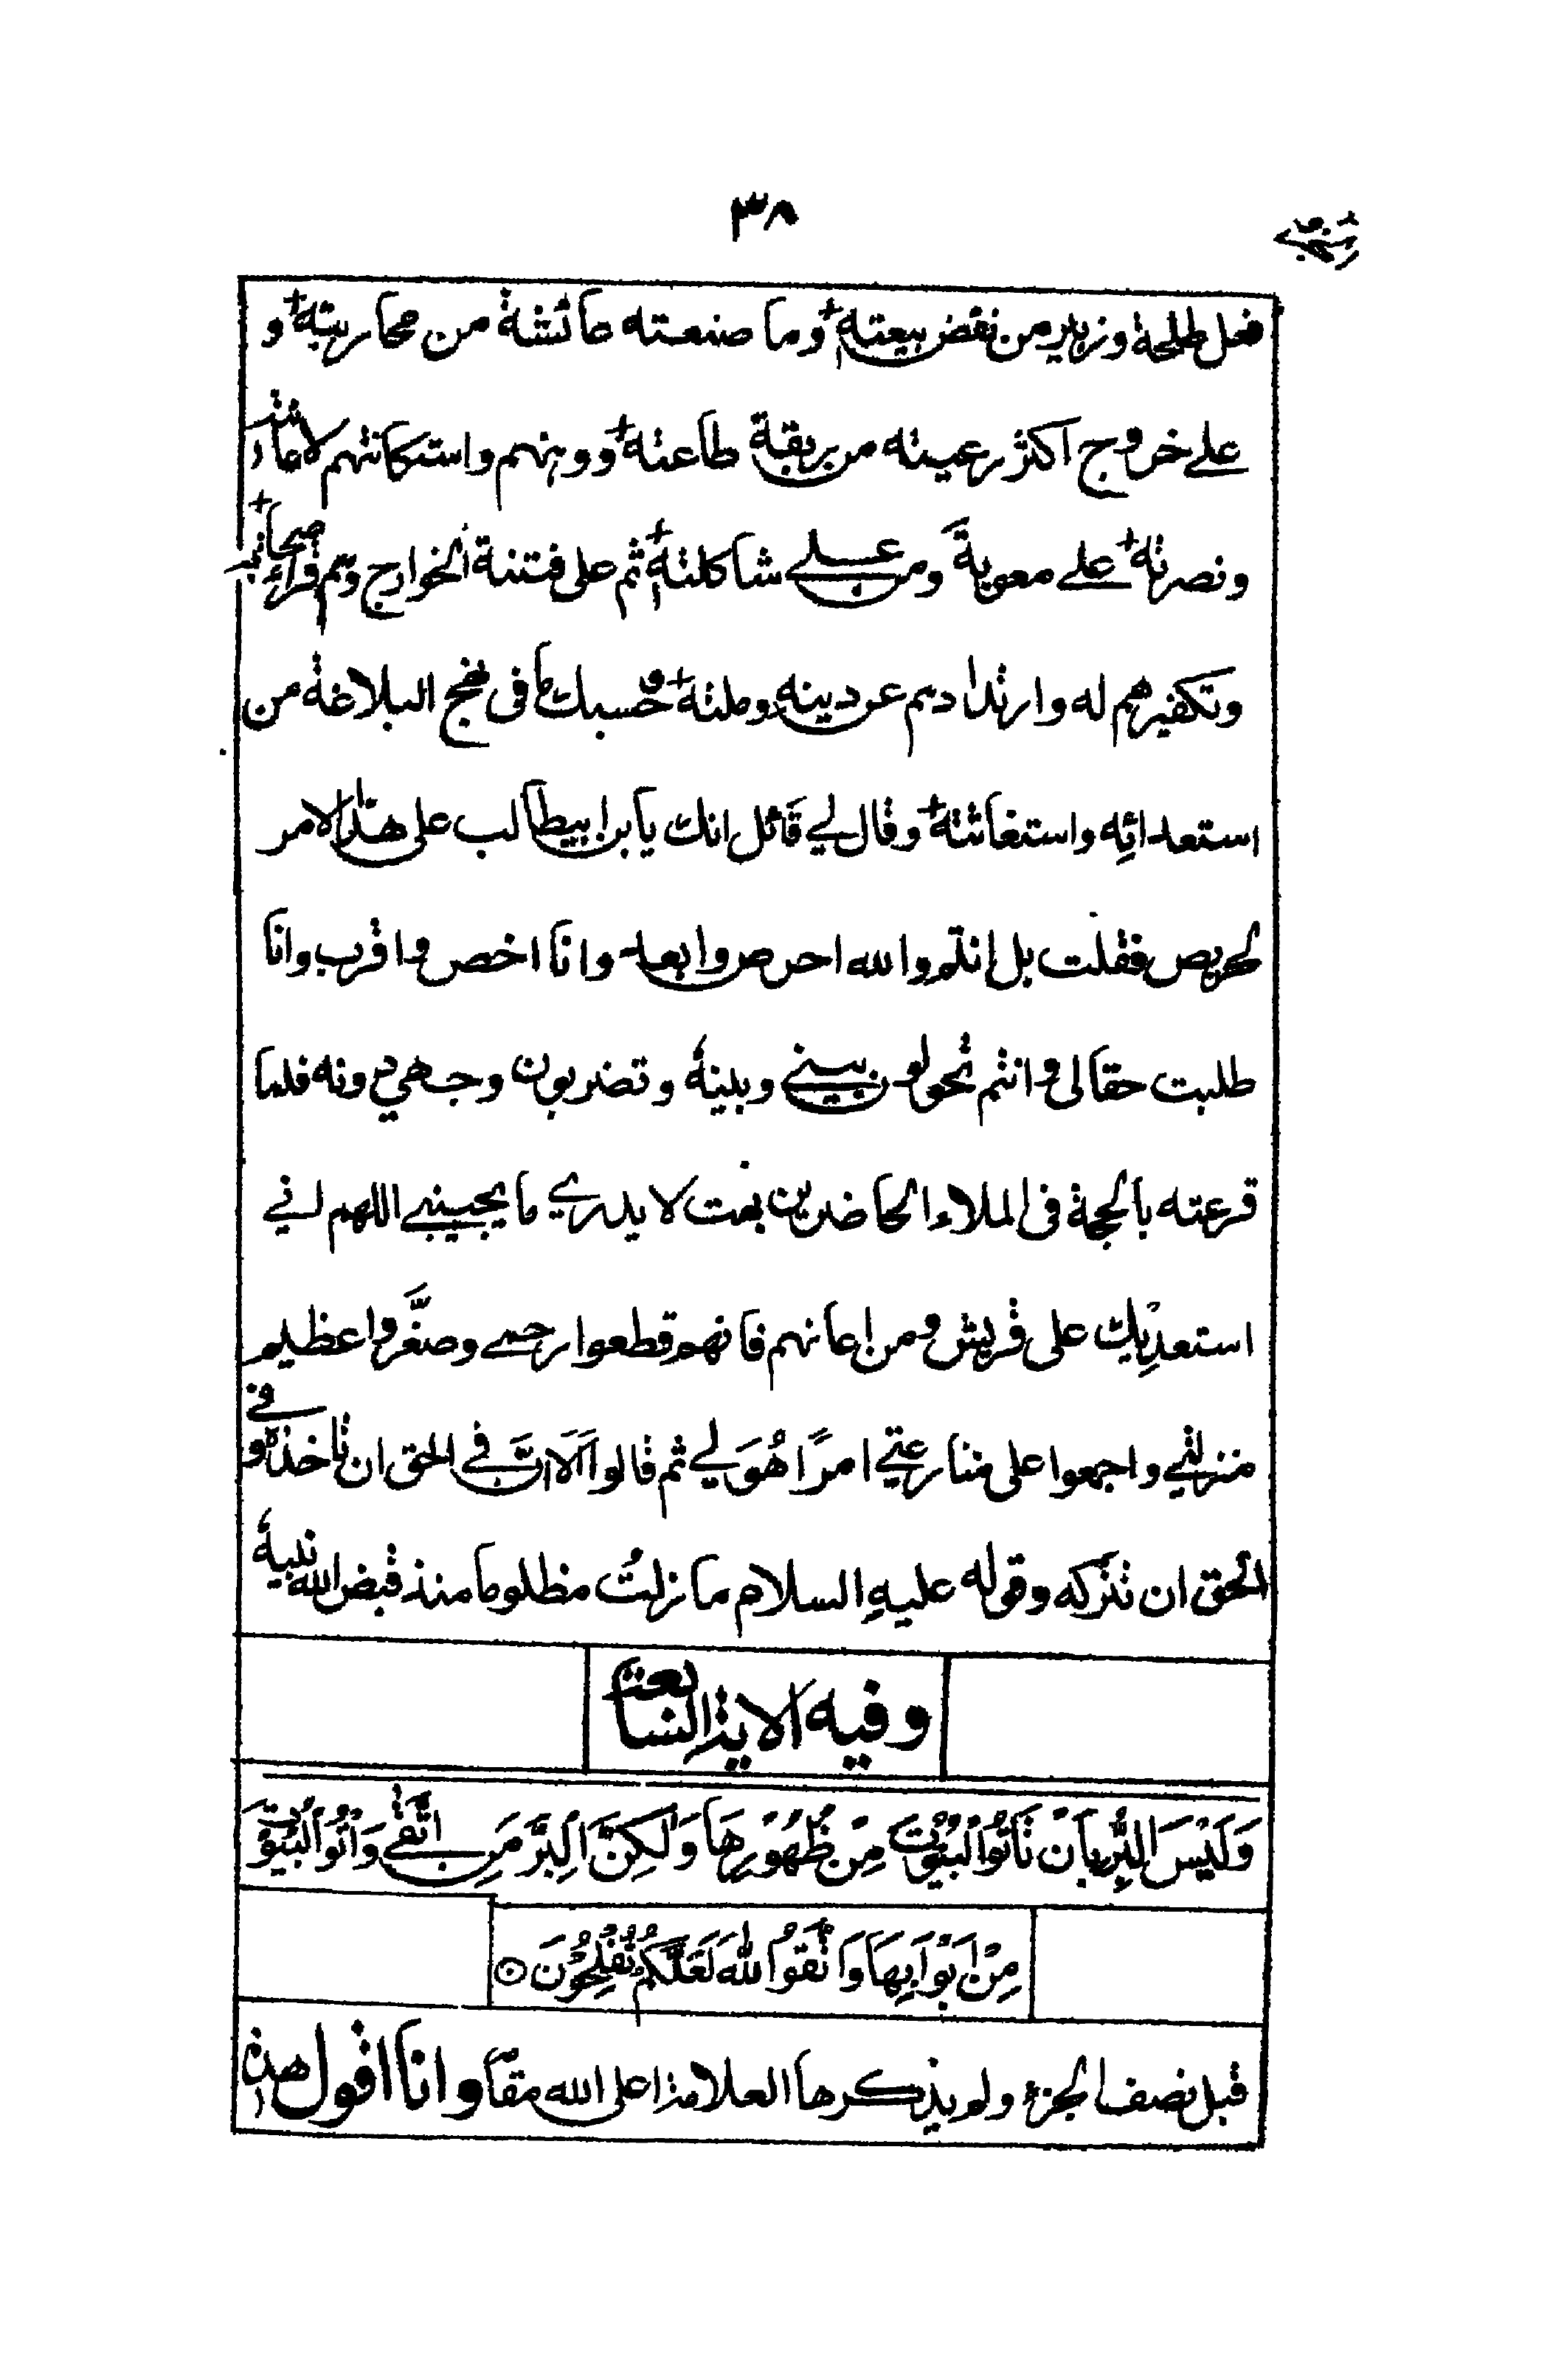 ٣٨
فعل طلحة وزبير من نقض بيعته وما صنعته عائشة من محاربته و
على خروج اكثر رعيته من ربقة طاعته ووهنهم واستكانتهم لاعانته
ونصرته على معوية ومن على شاكلته ثم على فتنة الخوارج وهم قراء صحابته
وتكفيرهم له وارتدادهم عن دينه وملته وحسبك ما فى نهج البلاغة من
استعدائِه واستغاثته وقال لي قائل انك يابن ابيطالب على هذا الامر
لحريص فقلت بل انتم والله احرص وابعد وانا اخص واقرب وانا
طلبت حقا لى وانتم تحولون بيني وبينه وتضربون وجهي دونه فلما
قرعته بالحجة فى الملاء الحاضرين بهت لا يدري ما يجيبني اللهم اني
استعدِيك على قريش ومن اعانهم فانهم قطعوا رحمى وصغَّروا عظيم
منزلتي واجمعوا على منازعتي امرًا هُوَ لي ثم قالوا اَلَا انَّ في الحق ان تاخذه وفي
الحق ان تتركه وقوله عليهِ السلام ما زلتُ مظلوما منذ قبض الله نبيه
وفيه الاية السابعة
وَلَيْسَ الْبِرُّ بِاَنْ تَأْتُوا الْبُيُوْتَ مِنْ ظُهُوْرِهَا وَلٰكِنَّ الْبِرَّ مَنِ اتَّقٰى وَأْتُوا الْبُيُوْتَ
مِنْ اَبْوَابِهَا وَاتَّقُوا اللّٰهَ لَعَلَّكُمْ تُفْلِحُوْنَ ۝
قبل نصف الجزء ولم يذكرها العلامة اعلى الله مقامه وانا اقول هذه